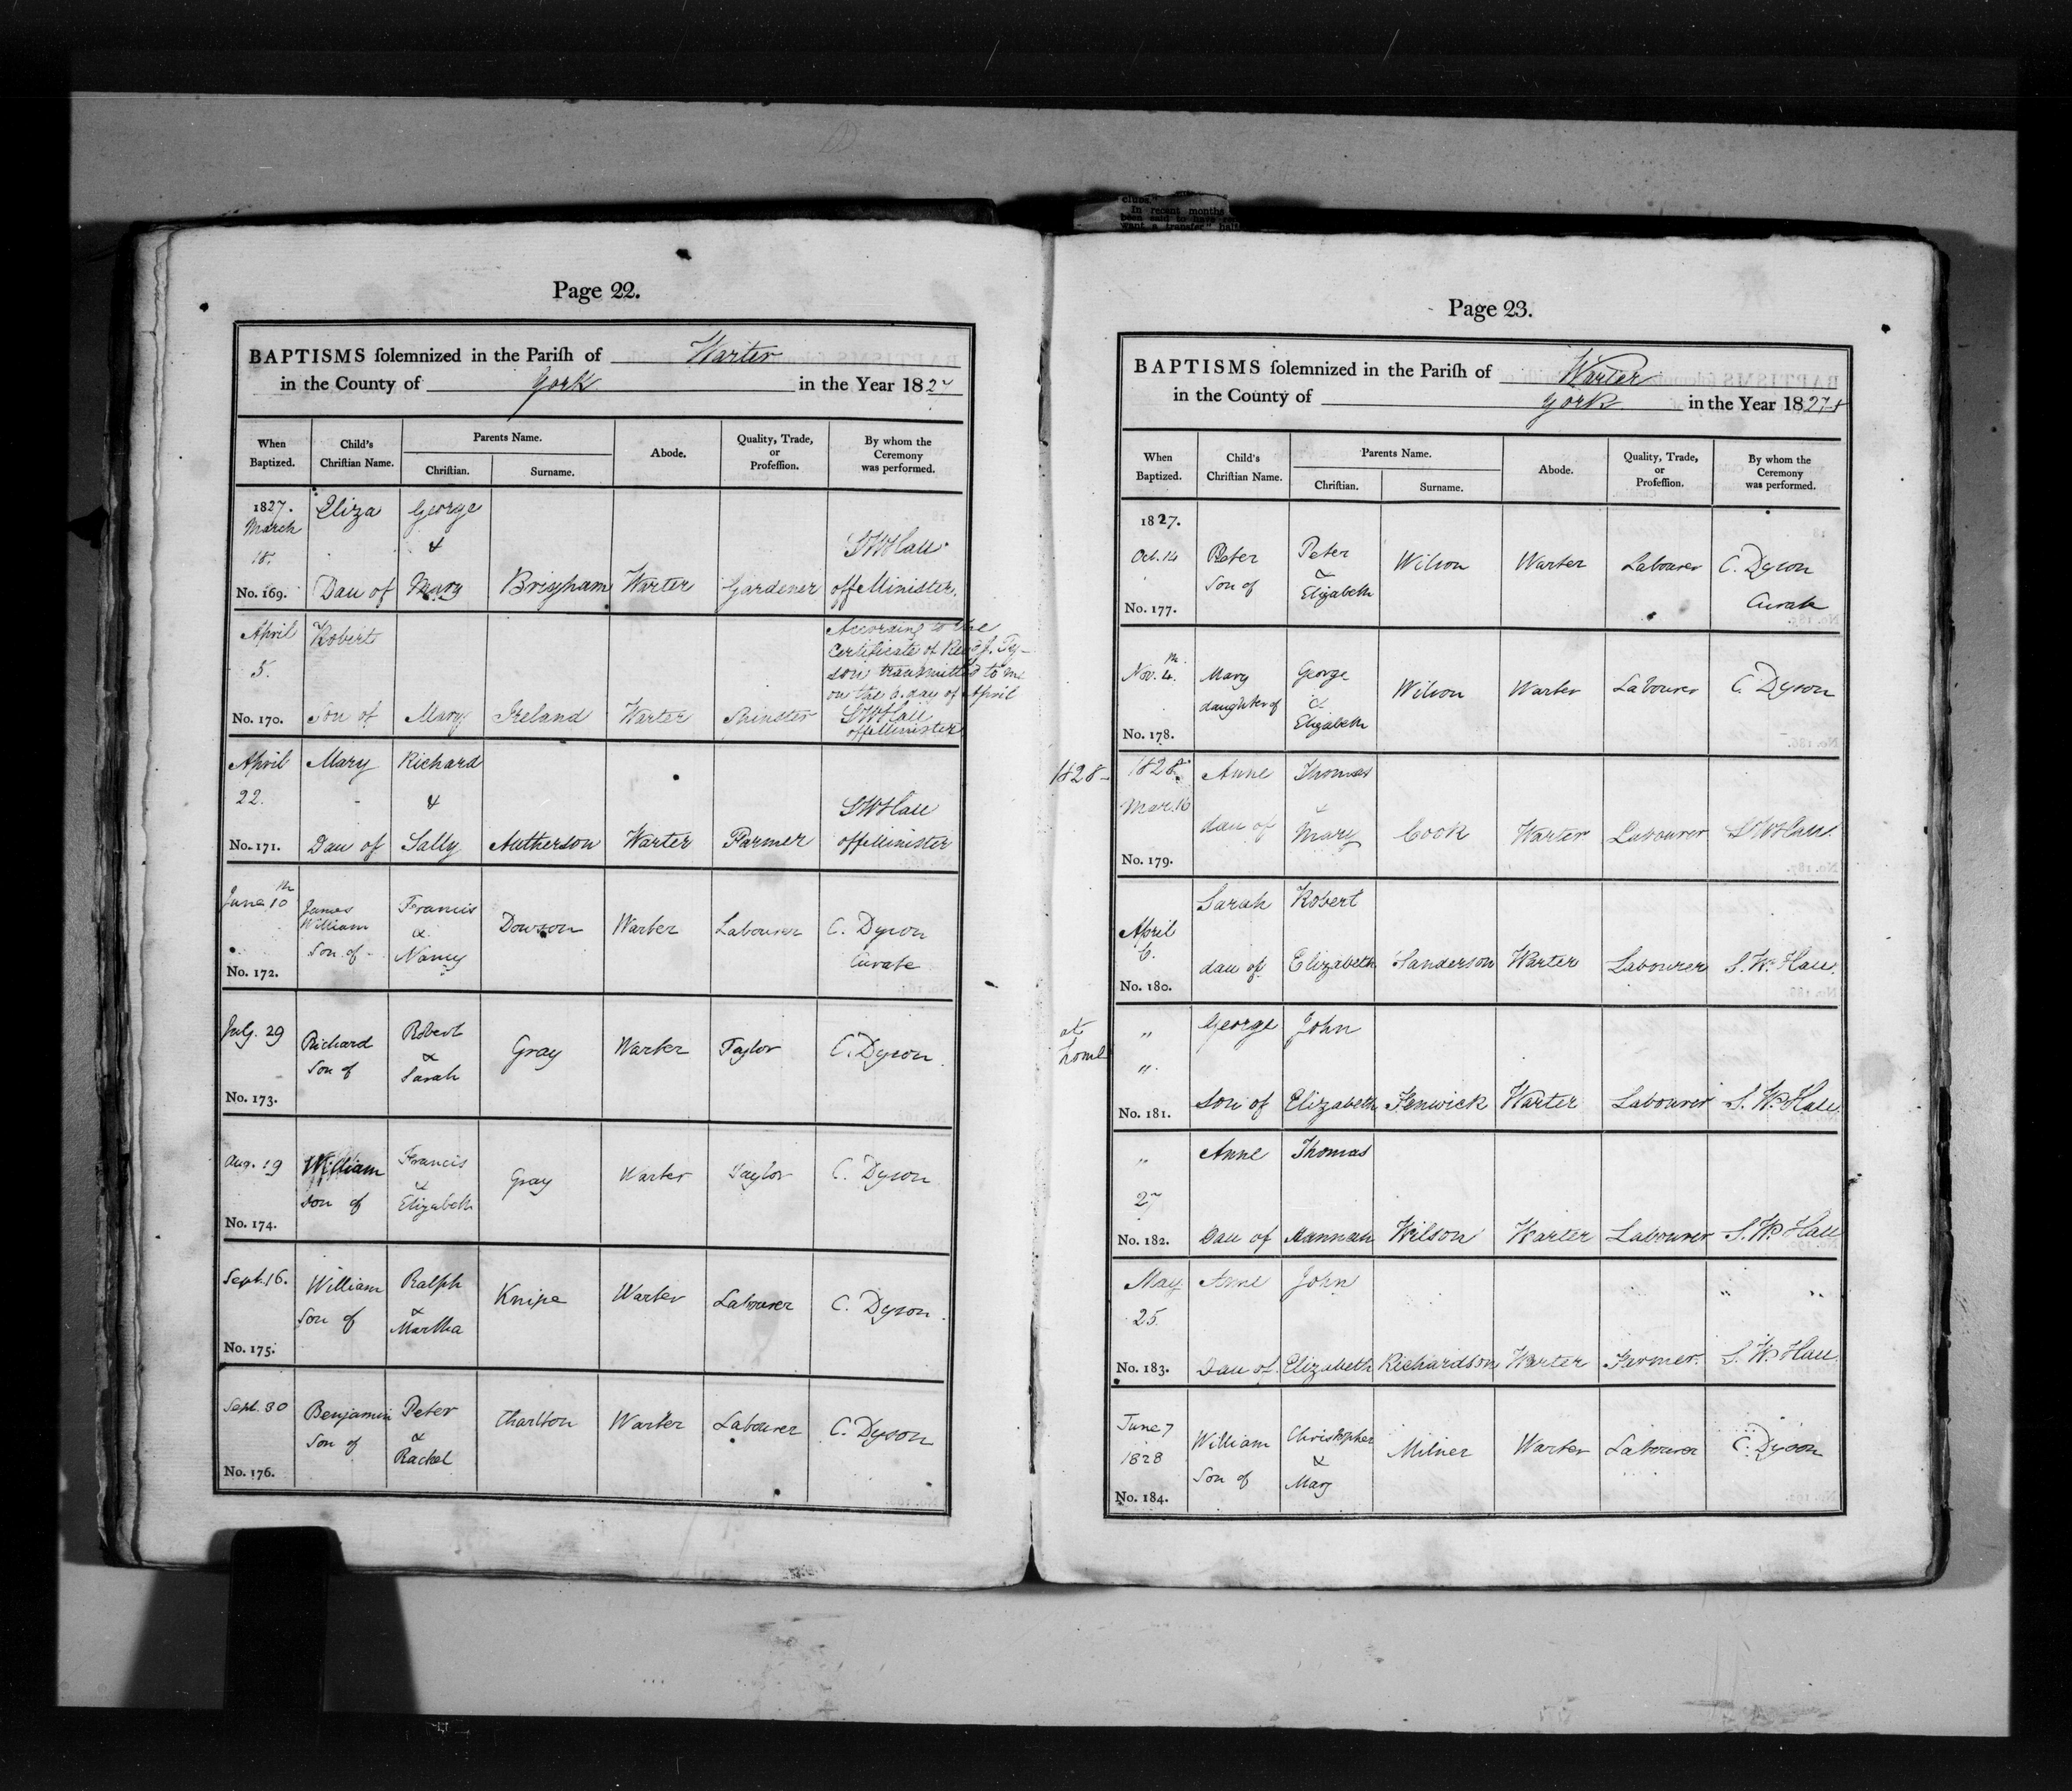 clues."
In recent months
been said to have
want a transfer
Page 22.
BAPTISMS ſolemnized in the Pariſh of Warter
in the County of York in the Year 1827
When Baptized. Child's Chriſtian Name. Parents Name. Chriſtian. Surname. Abode. Quality, Trade, or Profeſſion. By whom the Ceremony was performed.
1827. Eliza George
March & SWHall
18.
No. 169. Dau of Mary Brigham Warter Gardener off Minister.
April Robert According to the
5. Certificate of Revd J. Ty-
son transmitted to me
on the 6. day of April
No. 170. Son of Mary Ireland Warter Spinster SWHall
off Minister
April Mary Richard
22. & SWHall
No. 171. Dau of Sally Autherson Warter Farmer off Minister
June 10th James William Francis & Dowson Warter Labourer C. Dyson
Son of Nancy Curate
No. 172.
July. 29 Richard Robert & Gray Warter Taylor C. Dyson.
Son of Sarah
No. 173.
Aug. 19 William Francis & Gray Warter Taylor C. Dyson
Son of Elizabeth
No. 174.
Sept. 16. William Ralph & Knipe Warter Labourer C. Dyson.
Son of Martha
No. 175.
Sept. 30 Benjamin Peter & Charlton Warter Labourer C. Dyson
Son of Rachel
No. 176.
Page 23.
BAPTISMS ſolemnized in the Pariſh of Warter
in the County of York in the Year 1827-8
When Baptized. Child's Chriſtian Name. Parents Name. Chriſtian. Surname. Abode. Quality, Trade, or Profeſſion. By whom the Ceremony was performed.
1827.
Oct. 14 Peter Peter & Wilson Warter Labourer C. Dyson
Son of Elizabeth Curate
No. 177.
Nov. 4th Mary George & Wilson Warter Labourer C. Dyson
daughter of Elizabeth
No. 178.
1828- 1828. Anne Thomas
Mar. 16 &
dau of Mary Cook Warter Labourer SWHall.
No. 179.
Sarah Robert
April
6. dau of Elizabeth Sanderson Warter Labourer S. W. Hall.
No. 180.
at home " George John
"
No. 181. Son of Elizabeth Fenwick Warter Labourer S. W. Hall.
" Anne Thomas
27
No. 182. Dau of Hannah Wilson Warter Labourer S. W. Hall
May Anne John " "
25.
No. 183. Dau of Elizabeth Richardson Warter Farmer. S. W. Hall.
June 7 William Christopher Milner Warter Labourer C. Dyson
1828 &
Son of Mary
No. 184.